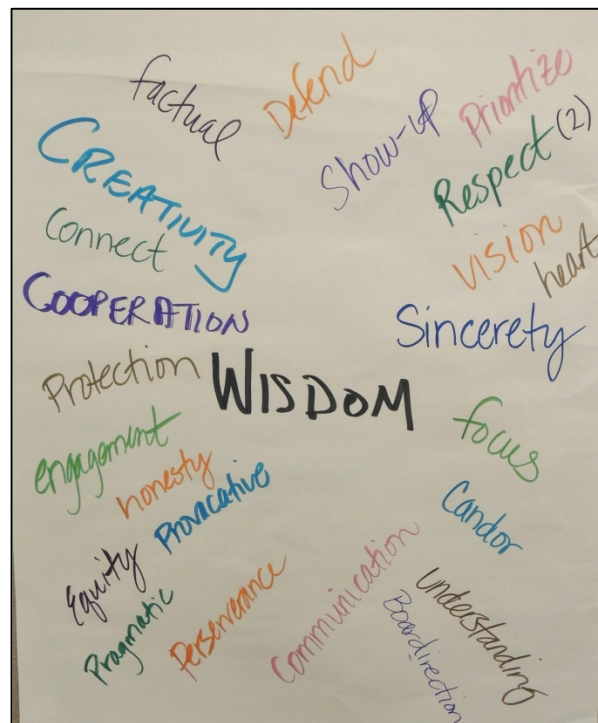 factual
Defend
Show-up
Prioritize
Respect (2)
CREATIVITY
Connect
vision
heart
COOPERATION
Sincerety
Protection
WISDOM
focus
engagement
honesty
Provacative
Candor
Equity
Pragmatic
Perserverance
Communication
understanding
Boardirection